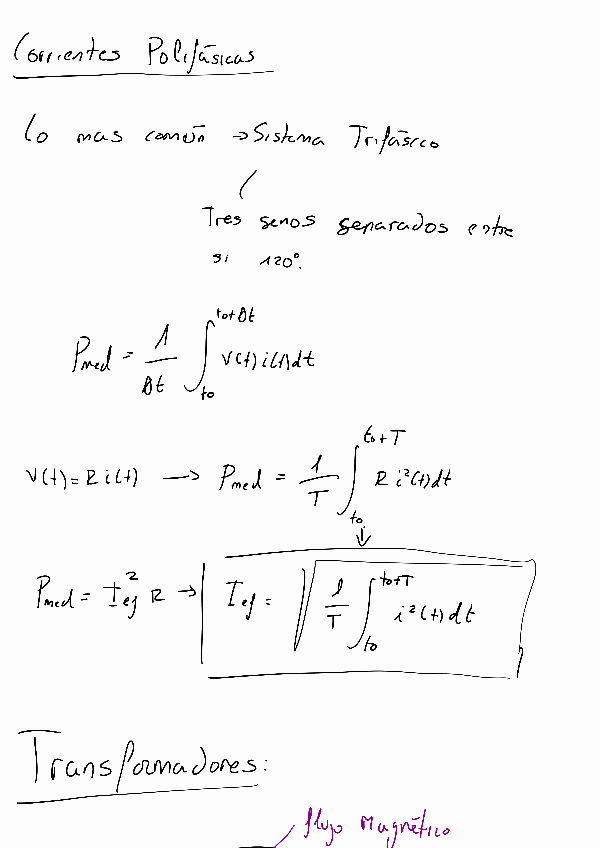 Corrientes Polifásicas
Lo mas común → Sistema Trifásico
Tres senos separados entre
si 120º.
Pmed = 1/Δt ∫_{to}^{to+Δt} V(t) i(t) dt
V(t) = R i(t) → Pmed = 1/T ∫_{to}^{to+T} R i²(t) dt
Pmed = Ief² R → Ief = √(1/T ∫_{to}^{to+T} i²(t) dt)
Transformadores:
flujo Magnético